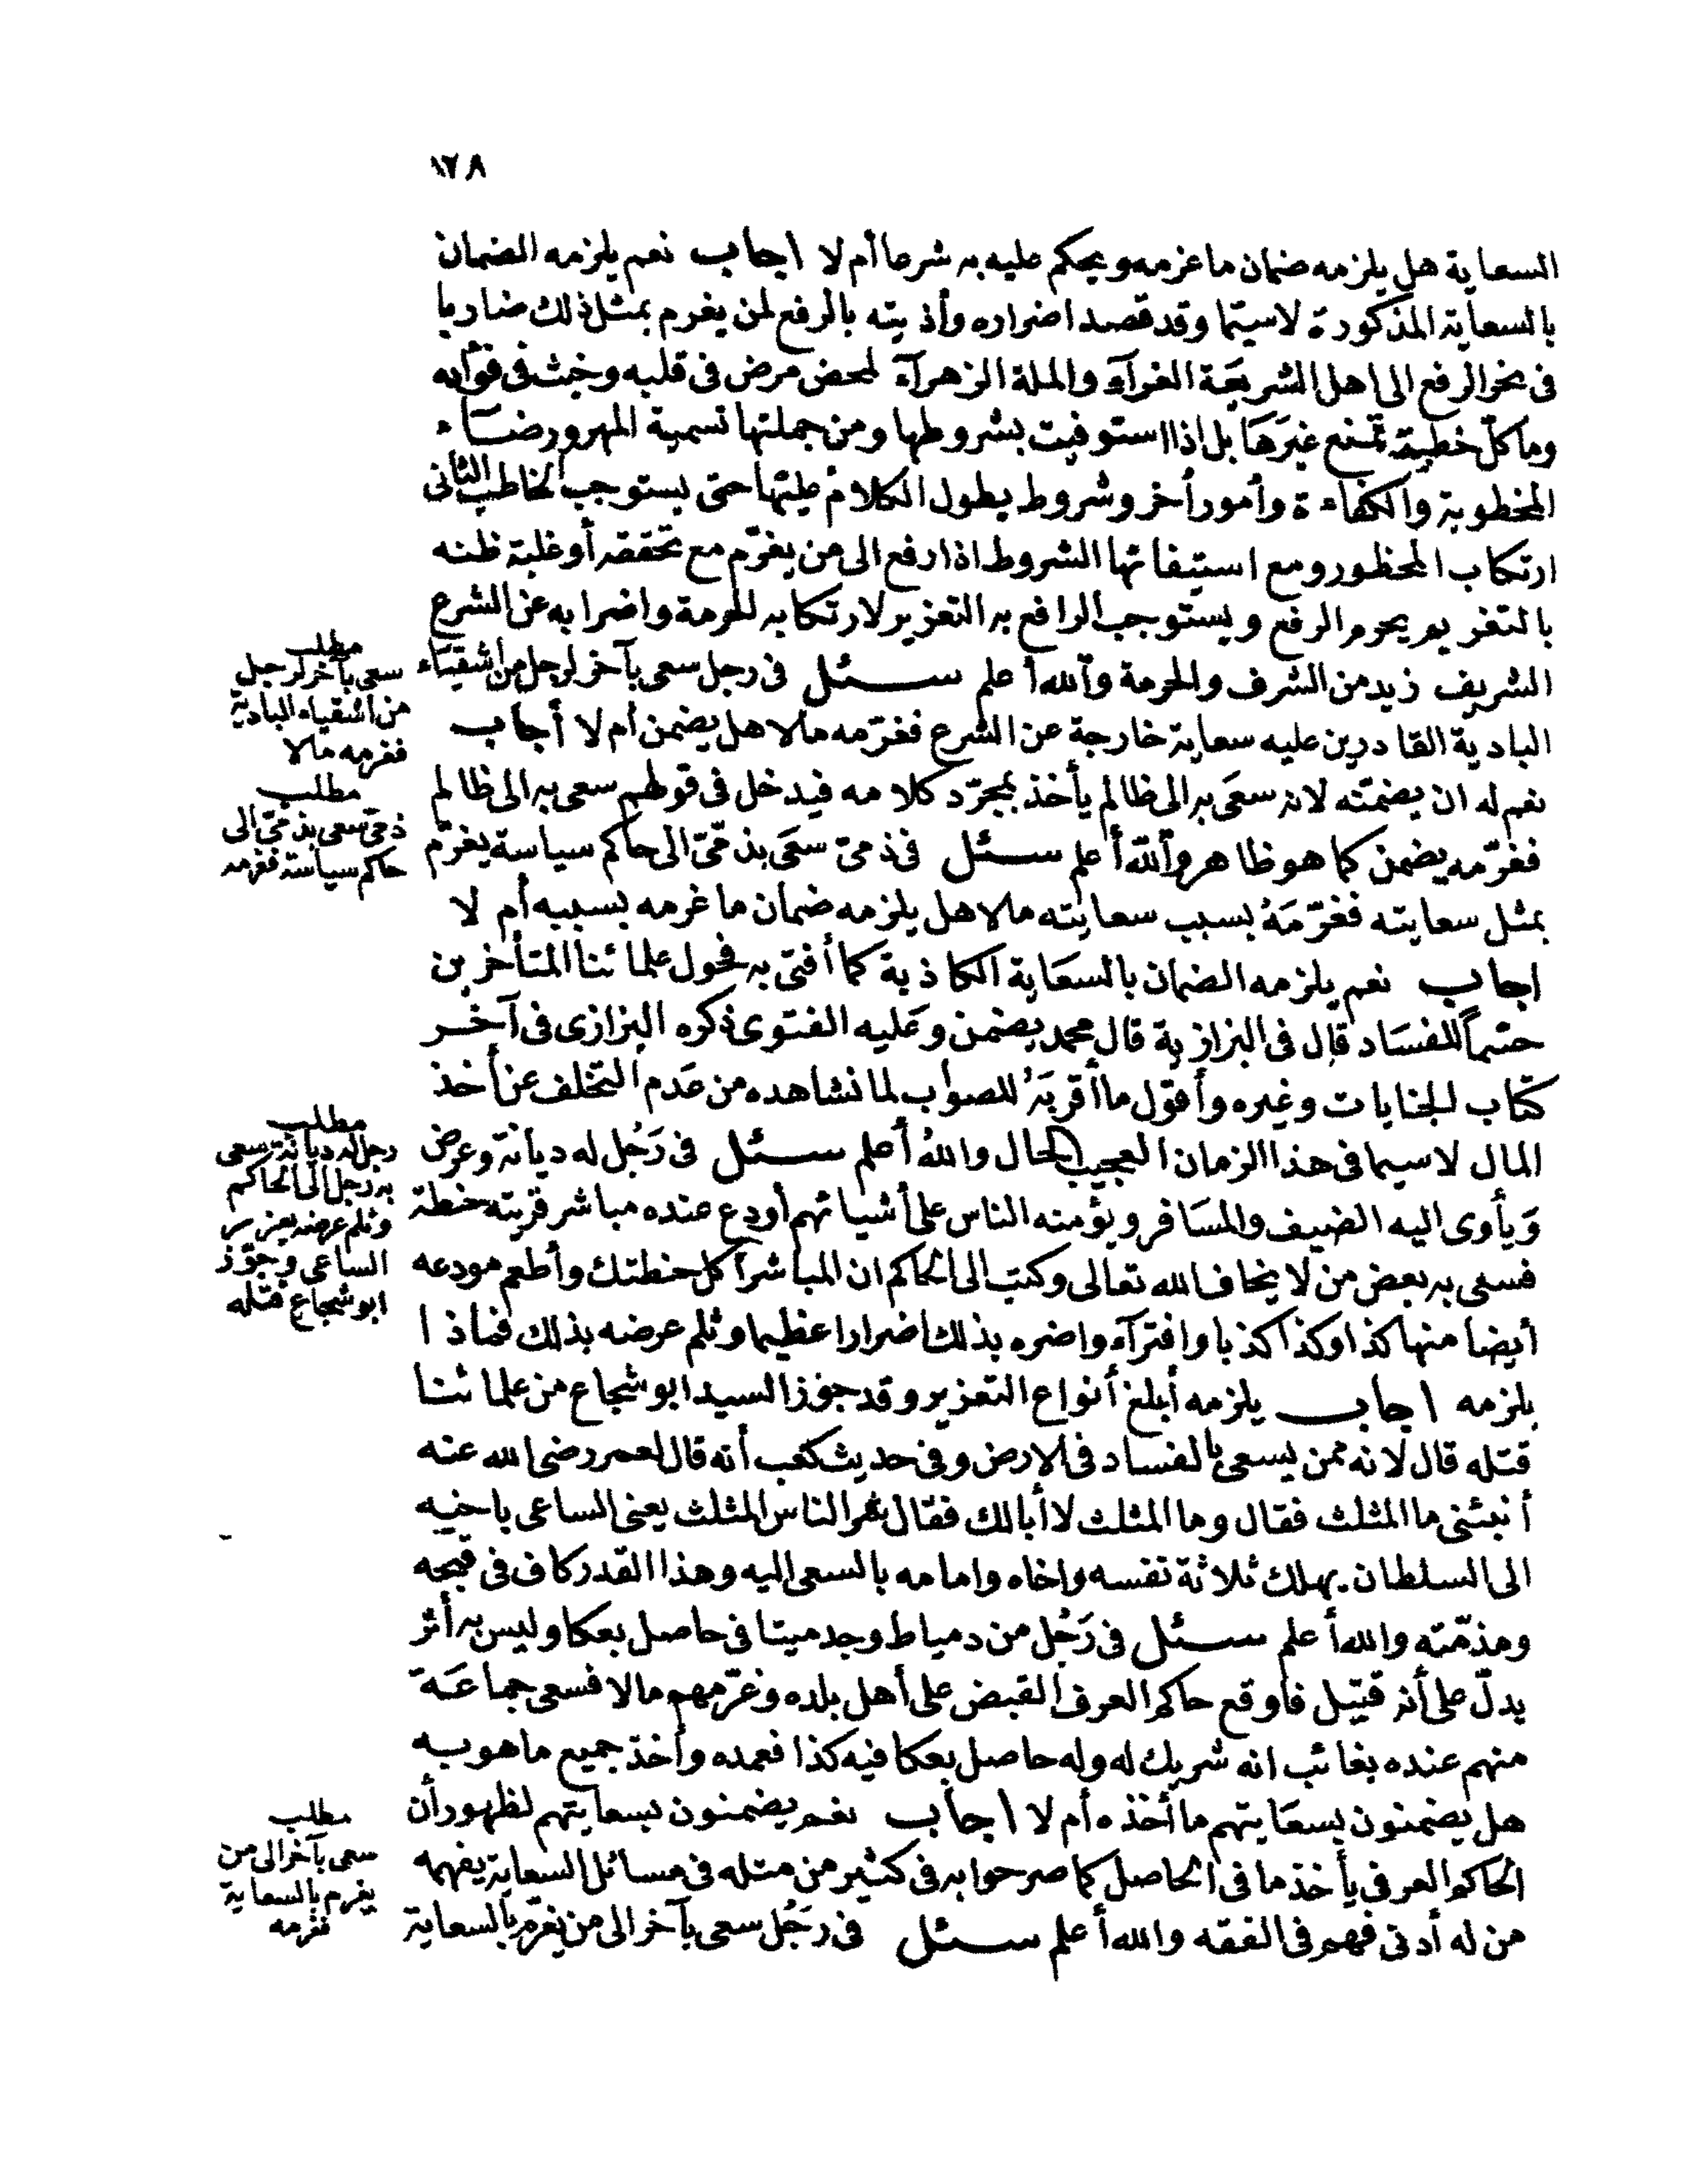 ١٧٨
السعاية هل يلزمه ضمان ماغرمه ويحكم عليه به شرعا أم لا اجاب نعم يلزمه الضمان
بالسعاية المذكورة لاسيما وقد قصد اضراره وأذيته بالرفع لمن يغرم بمثل ذلك ضاربا
فى نحو الرفع الى اهل الشريعة الغرآء والملة الزهرآء لمحض مرض فى قلبه وخبث فى فؤاده
وما كل خطبة تمنع غيرها بل اذا استوفيت بشروطها ومن جملتها تسمية المهر ورضاء
المخطوبة والكفاءة وأمور أخر وشروط يطول الكلام عليها حتى يستوجب الخاطب الثانى
ارتكاب المحظور ومع استيفائها الشروط اذا رفع الى من يغرّم مع تحققه أو غلبة ظنه
بالتغريم يحرم الرفع ويستوجب الرافع به التعزير لارتكابه للحرمة واضرابه عن الشرع
الشريف زيد من الشرف والحرمة والله أعلم سئل فى رجل سعى بآخر لرجل من اشقياء
مطلب
سعى بآخر لرجل
من اشقياء البادية
فغرمه مالا
البادية القادرين عليه سعاية خارجة عن الشرع فغرّمه مالا هل يضمن أم لا أجاب
نعم له ان يضمنّه لانه سعى به الى ظالم يأخذ بمجرّد كلامه فيدخل فى قولهم سعى به الى ظالم
فغرّمه يضمن كما هو ظاهر والله أعلم سئل فى ذمىّ سعى بذمّىّ الى حاكم سياسة يغرّم
مطلب
ذمىّ سعى بذمّىّ الى
حاكم سياسة فغرمه
بمثل سعايته فغرّمَهُ بسبب سعايته مالا هل يلزمه ضمان ما غرمه بسببه أم لا
اجاب نعم يلزمه الضمان بالسعاية الكاذبة كما أفتى به فحول علمائنا المتأخرين
حسماً للفساد قال فى البزازية قال محمد يضمن وعليه الفتوى ذكره البزازى فى آخر
كتاب الجنايات وغيره وأقول ما أقربَهُ للصواب لما نشاهده من عدم التخلف عن أخذ
المال لاسيما فى هذا الزمان العجيب الحال والله أعلم سئل فى رَجُل له ديانة وعرض
مطلب
رجل له ديانة سعى
به رجل الى الحاكم
وثلم عرضه يعزر
الساعى وجوّز
ابو شجاع قتله
وَيأوى اليه الضيف والمسافر ويؤمنه الناس على أشيائهم أودع عنده مباشر قريته حنطة
فسعى به بعض من لا يخاف الله تعالى وكتب الى الحاكم ان المباشر أكل حنطتك وأطعم مودعه
أيضا منها كذا وكذا كذبا وافترآء واضره بذلك اضرارا عظيما وثلم عرضه بذلك فماذا
يلزمه اجاب يلزمه أبلغ أنواع التعزير وقد جوز السيد ابو شجاع من علمائنا
قتله قال لانه ممن يسعى بالفساد فى الارض وفى حديث كعب أنه قال لعمر رضى الله عنه
أنبئنى ما المثلث فقال وما المثلث لا أبا لك فقال شر الناس المثلث يعنى الساعى باخيه
الى السلطان يهلك ثلاثة نفسه واخاه وامامه بالسعى اليه وهذا القدر كاف فى قبحه
ومذمّته والله أعلم سئل فى رَجُل من دمياط وجد ميتا فى حاصل بعكا وليس به أثر
يدلّ على أنه قتيل فاوقع حاكم العرف القبض على أهل بلده وغرّمهم مالا فسعى جماعة
منهم عنده بغائب انه شريك له وله حاصل بعكا فيه كذا فعمده وأخذ جميع ما هو به
هل يضمنون بسعايتهم ما أخذه أم لا اجاب نعم يضمنون بسعايتهم لظهور أن
الحاكم العرفى يأخذ ما فى الحاصل كما صرحوا به فى كثير من مثله فى مسائل السعاية يفهمه
من له أدنى فهم فى الفقه والله أعلم سئل فى رَجُل سعى بآخر الى من يغرّم بالسعاية
مطلب
سعى بآخر الى من
يغرم بالسعاية
فغرمه